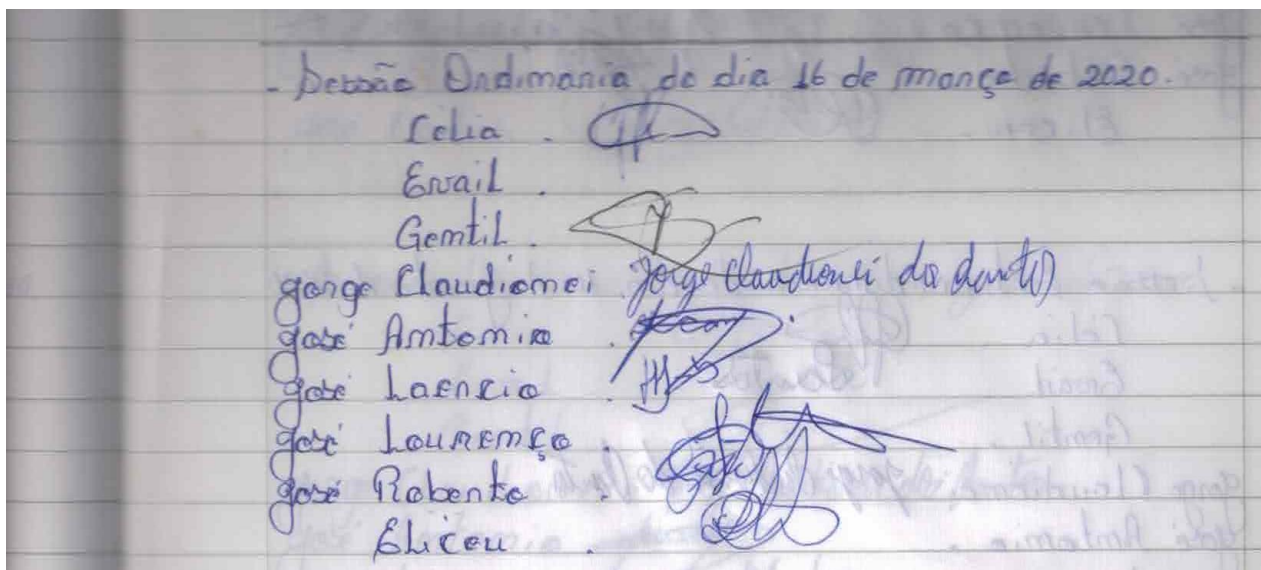 - Sessão Ordinária do dia 16 de março de 2020.
Celia .
Erail .
Gentil .
Jorge Claudionei . Jorge Claudionei dos Santos
José Antonio .
José Laercio .
José Lourenço .
José Roberto .
Eliceu .